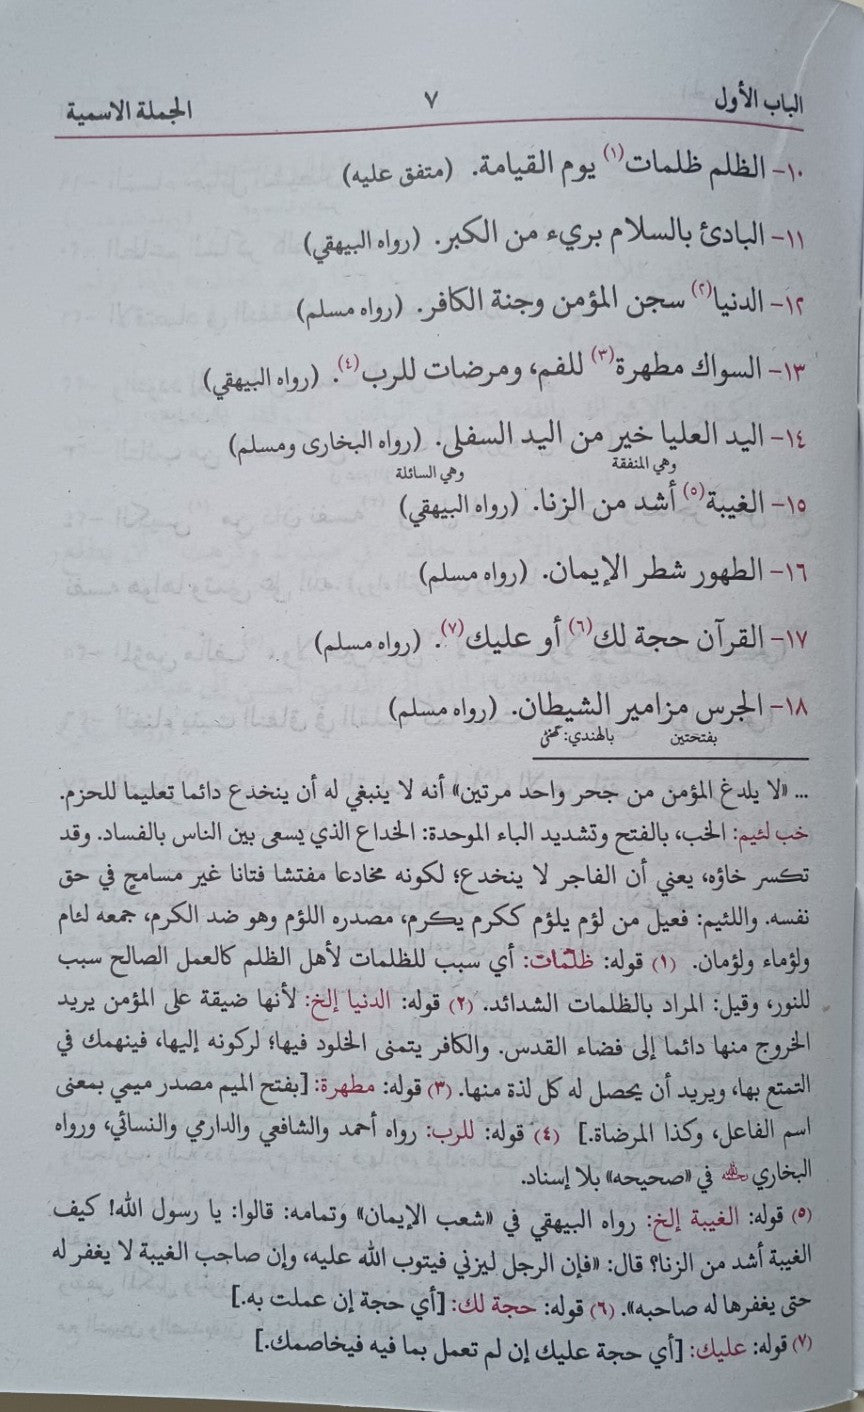 الباب الأول ٧ الجملة الاسمية
١٠- الظلم ظلمات(١) يوم القيامة. (متفق عليه)
١١- البادئ بالسلام بريء من الكبر. (رواه البيهقي)
١٢- الدنيا(٢) سجن المؤمن وجنة الكافر. (رواه مسلم)
١٣- السواك مطهرة(٣) للفم، ومرضات للرب(٤). (رواه البيهقي)
١٤- اليد العليا خير من اليد السفلى. (رواه البخارى ومسلم)
وهي المنفقة وهي السائلة
١٥- الغيبة(٥) أشد من الزنا. (رواه البيهقي)
١٦- الطهور شطر الإيمان. (رواه مسلم)
١٧- القرآن حجة لك(٦) أو عليك(٧). (رواه مسلم)
١٨- الجرس مزامير الشيطان. (رواه مسلم)
بفتحتين بالهندي:
... «لا يلدغ المؤمن من جحر واحد مرتين» أنه لا ينبغي له أن ينخدع دائما تعليما للحزم.
خب لئيم: الخب، بالفتح وتشديد الباء الموحدة: الخداع الذي يسعى بين الناس بالفساد. وقد
تكسر خاؤه، يعني أن الفاجر لا ينخدع؛ لكونه مخادعا مفتشا فتانا غير مسامح في حق
نفسه. واللئيم: فعيل من لؤم يلؤم ككرم يكرم، مصدره اللؤم وهو ضد الكرم، جمعه لئام
ولؤماء ولؤمان. (١) قوله: ظلمات: أي سبب للظلمات لأهل الظلم كالعمل الصالح سبب
للنور، وقيل: المراد بالظلمات الشدائد. (٢) قوله: الدنيا إلخ: لأنها ضيقة على المؤمن يريد
الخروج منها دائما إلى فضاء القدس. والكافر يتمنى الخلود فيها؛ لركونه إليها، فينهمك في
التمتع بها، ويريد أن يحصل له كل لذة منها. (٣) قوله: مطهرة: [بفتح الميم مصدر ميمي بمعنى
اسم الفاعل، وكذا المرضاة.] (٤) قوله: للرب: رواه أحمد والشافعي والدارمي والنسائي، ورواه
البخاري في «صحيحه» بلا إسناد.
(٥) قوله: الغيبة إلخ: رواه البيهقي في «شعب الإيمان» وتمامه: قالوا: يا رسول الله! كيف
الغيبة أشد من الزنا؟ قال: «فإن الرجل ليزني فيتوب الله عليه، وإن صاحب الغيبة لا يغفر له
حتى يغفرها له صاحبه». (٦) قوله: حجة لك: [أي حجة إن عملت به.]
(٧) قوله: عليك: [أي حجة عليك إن لم تعمل بما فيه فيخاصمك.]